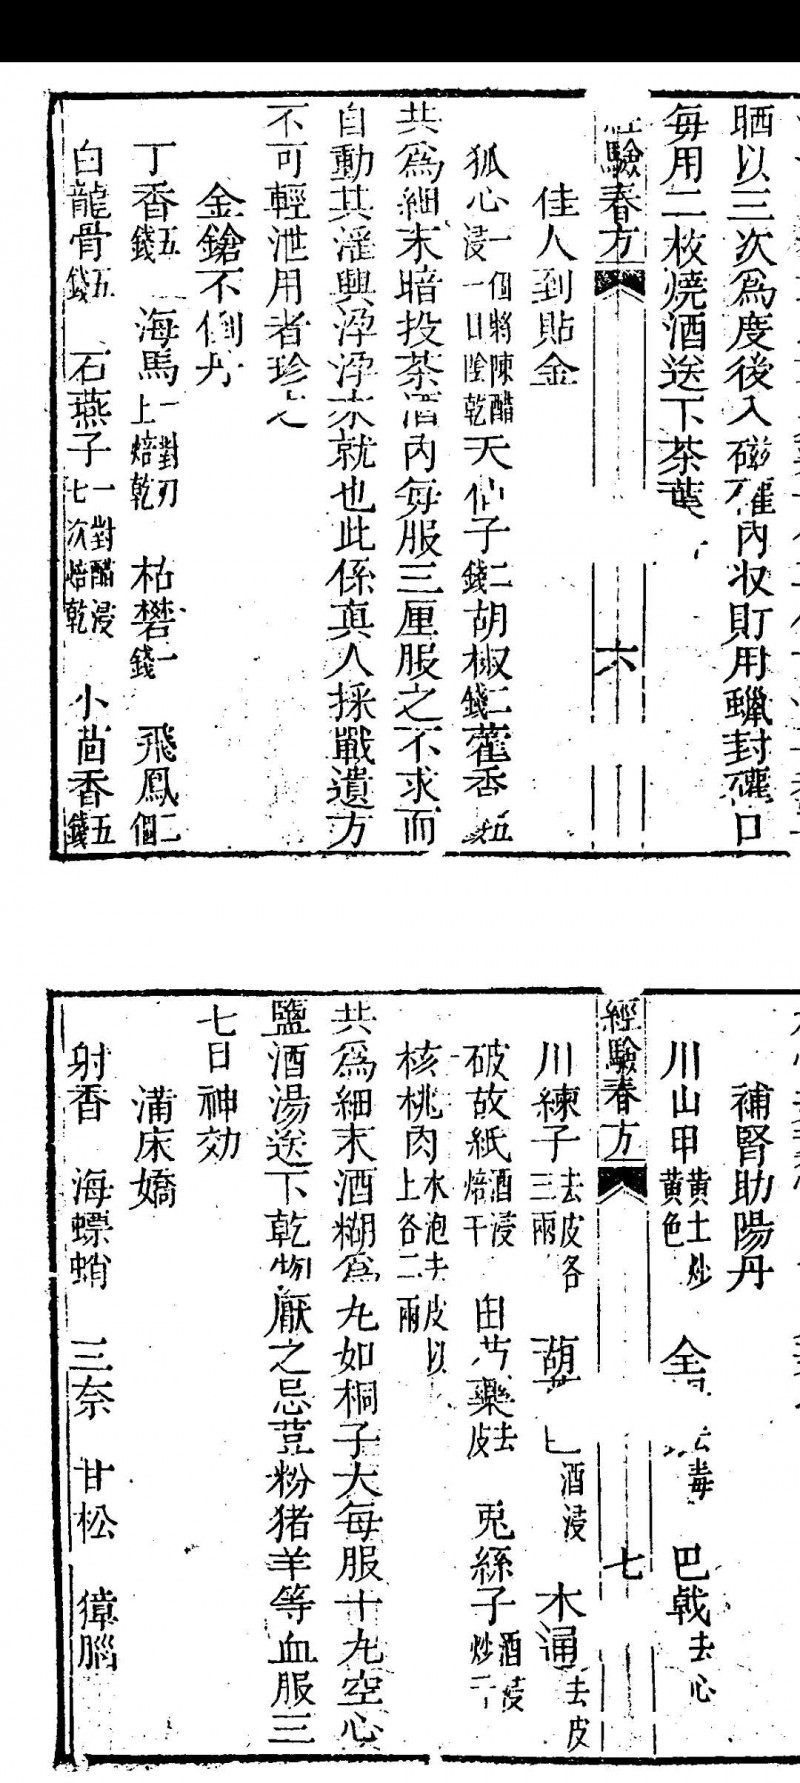 晒以三次為度後入磁礶內收貯用蠟封礶口
每用二枚燒酒送下茶葉
驗春方
六
佳人到貼金
狐心一個將陳醋浸一日陰乾天仙子二錢胡椒二錢藿香五
共為細末暗投茶酒內每服三厘服之不求而
自動其淫興浡浡來就也此係真人採戰遺方
不可輕泄用者珍之
金鎗不倒丹
丁香五錢 海馬一對刃上焙乾 枯礬一錢 飛鳳二個
白龍骨五錢 石燕子一對醋浸七次焙乾 小茴香五錢
補腎助陽丹
川山甲黃土炒黃色 全 去毒 巴戟去心
經驗春方
七
川練子去皮各三兩 葫 巴酒浸 木通去皮
破故紙酒浸焙干 肉 蓉去皮 兎絲子酒浸炒干
核桃肉水泡去皮以上各二兩
共為細末酒糊為丸如桐子大每服十丸空心
鹽酒湯送下乾物厭之忌荳粉猪羊等血服三
七日神効
滿床嬌
射香 海螵蛸 三奈 甘松 獐腦